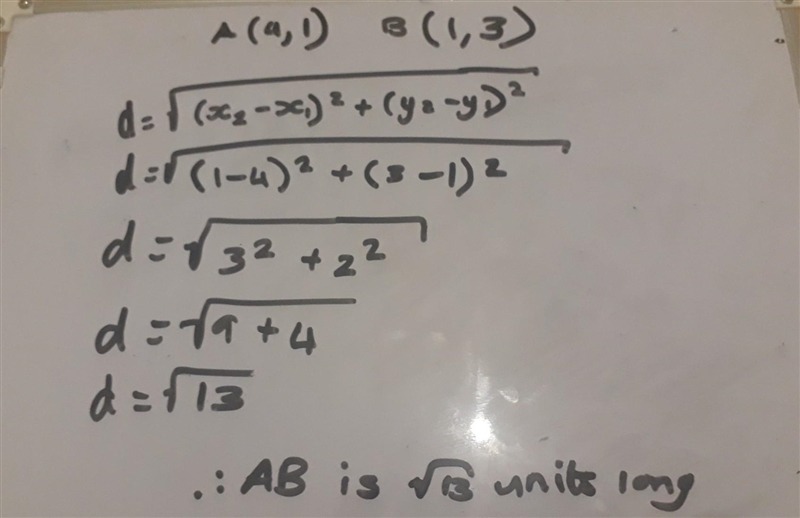 A (9,1) B (1,3)
d=√(x₂-x₁)² + (y₂-y₁)²
d=√(1-4)² + (3-1)²
d=√3² + 2²
d=√9+4
d=√13
∴ AB is √13 units long